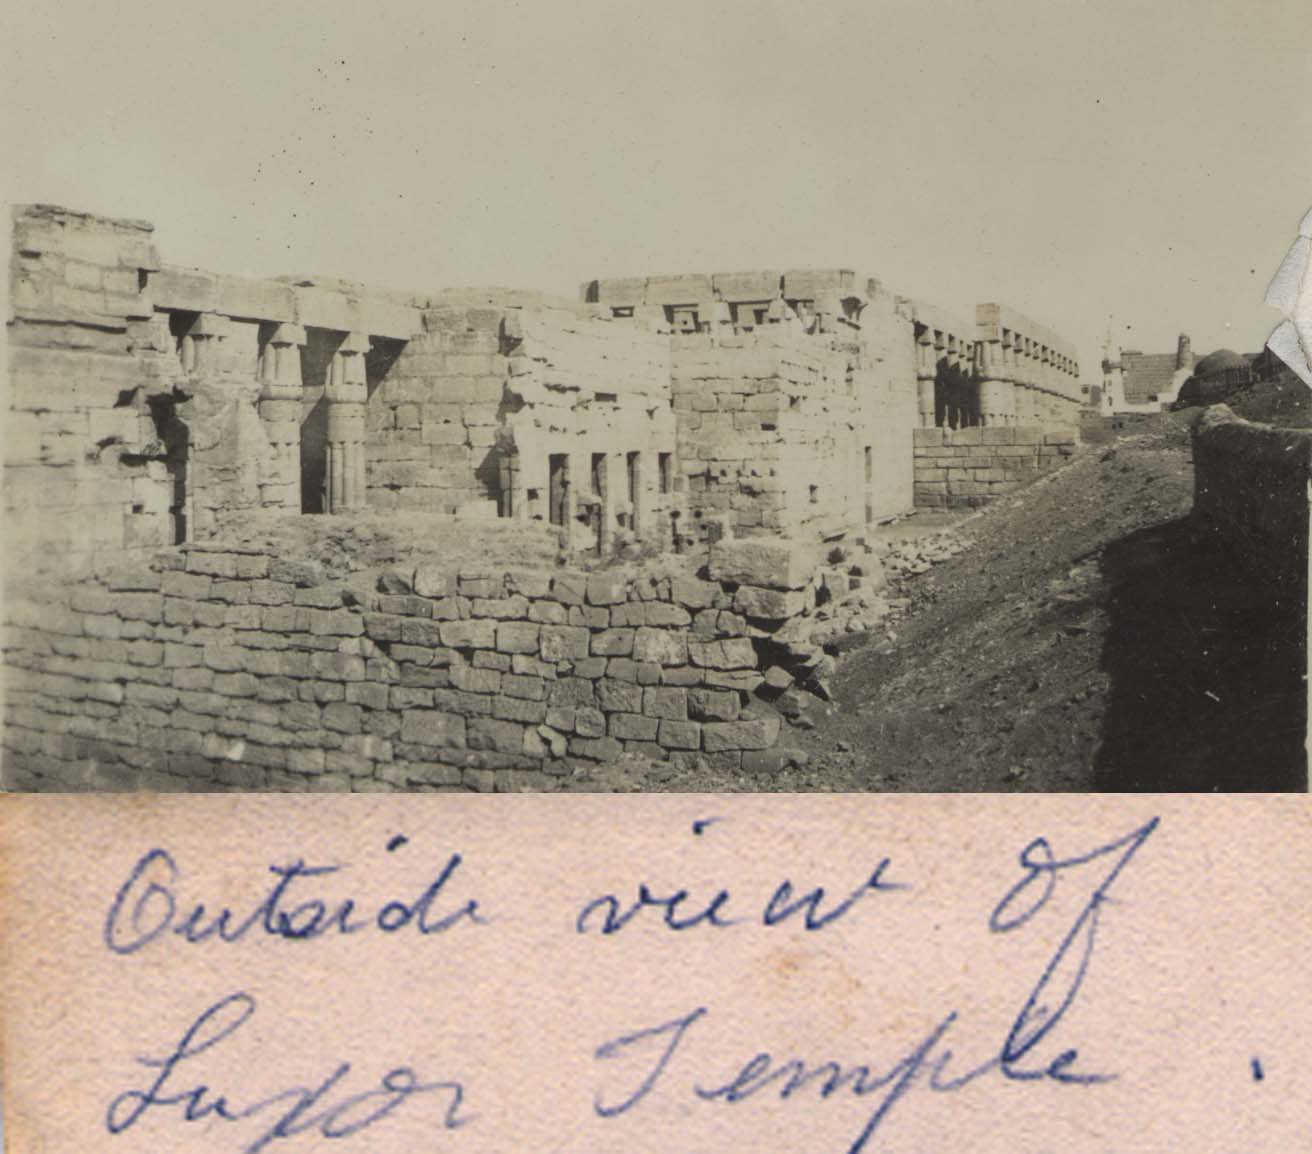 Outside view of
Luxor Temple .